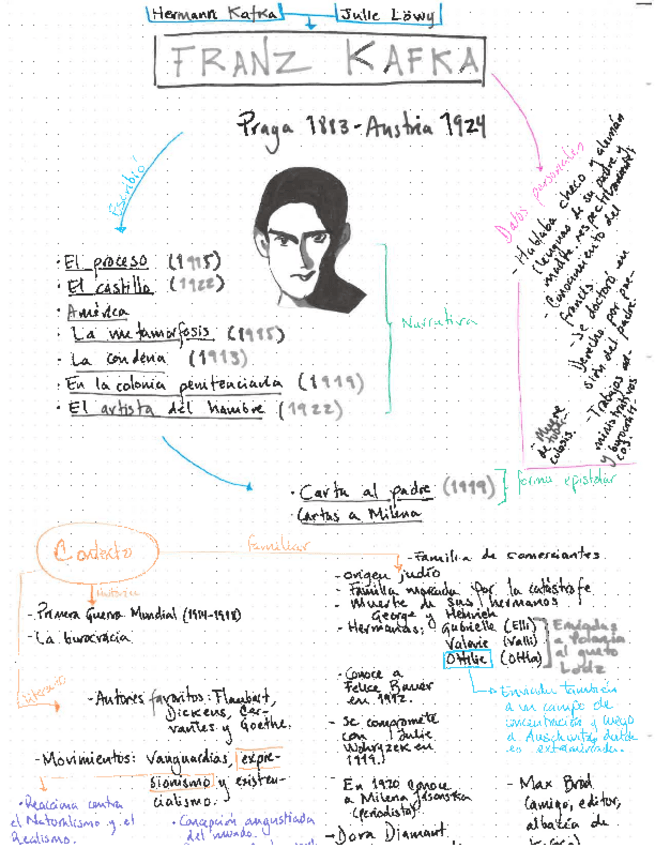 Hermann Kafka
Julie Löwy
FRANZ KAFKA
Praga 1883-Austria 1924
Escribió
· El proceso (1915)
· El castillo (1922)
· América
· La metamorfosis (1915)
· La condena (1913)
· En la colonia penitenciaria (1919)
· El artista del hambre (1922)
Narrativa
Datos personales
- Hablaba checo y alemán
(lenguas de su padre y
madre respectivamente)
- Conocimiento del
francés
- Se doctoró en
Derecho por pre-
sión del padre.
- Trabajos ad-
ministrativos
y burocráti-
cos.
- Muere
de tuber-
culosis.
· Carta al padre (1919)
· Cartas a Milena
forma epistolar
Contexto
Familiar
- Familia de comerciantes
- origen judío
- Familia marcada por la catástrofe
- Muerte de sus hermanos
George y Heinrich
- Hermanas: Gabrielle (Elli)
Valerie (Valli)
Ottilie (Ottla)
Enviadas
a Polonia
al gueto
Lodz
Enviada también
a un campo de
concentración y luego
a Auschwitz, donde
es exterminada.
- Primera Guerra Mundial (1914-1918)
- La burocracia
Literario
- Autores favoritos: Flaubert,
Dickens, Cer-
vantes y Goethe.
- Movimientos: Vanguardias, expre-
sionismo y existen-
cialismo.
· Reacciona contra
el Naturalismo y el
Realismo.
· Concepción angustiada
del mundo.
- Conoce a
Felice Bauer
en 1912.
- Se compromete
con Julie
Wohryzek en
1919.
- En 1920 conoce
a Milena Jesenska
(periodista)
- Dora Diamant.
- Max Brod
(amigo, editor,
albacea de